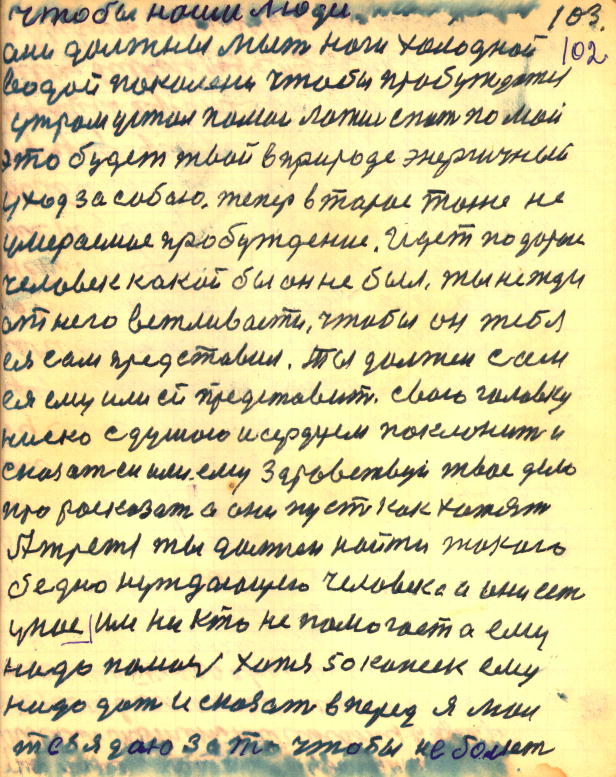 чтобы наши люди 103.
они должны мыт ноги холодной 102
водой поколени чтобы пробуждатся
утром устал помой ложис спат помой
это будет твой в природе энергичный
уход за собою. тепер второе тоже не
умераемое пробуждение. Идет по дороге
человек какой бы он не был. ты не жди
от него вежливасти, чтобы он тебя
ся сам представил. Ты должен с сам
ся ему или ей представит. свою головку
ниско с душою и сердцем поклонит и
сказат ей или ему здравствуй твое дело
про расказат а они пуст как хотят
А третя ты должен найти такого
бедно нуждающего человека а они ест
у нас им ни кто не помогает а ему
надо помоч хотя 50 копеек ему
надо дат и сказат вперед я мол
тебя даю за то чтобы не болет